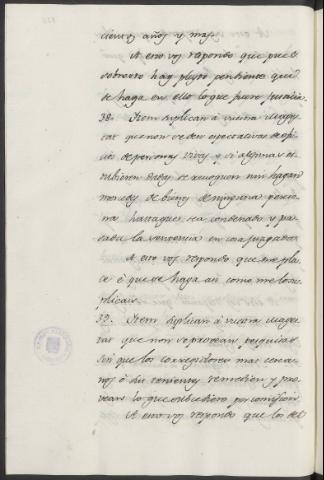 cientos años y mas.
A esto vos respondo que pues
sobre esto hay pleyto pendiente que
se haga en ello lo que fuere Justicia.
38. Item suplican à vuestra Mages
tad que non se den espectativas de ofi
cios de personas vivas y si algunas es
tubieren dadas se revoquen nin hagan
merced de bienes de ninguna perso
na hasta que sea condenado y pa
sada la sentencia en cosa juzgada
A esto vos respondo que me pla
ce è que se haga asi como me lo su
plicais.
39. Item suplican à vuestra mages
tad que non se provean pesquisas
sin que los corregidores mas cerca
nos ò sus tenientes remedien y pro
vean lo que subcediere por comision
A esto vos respondo que los del